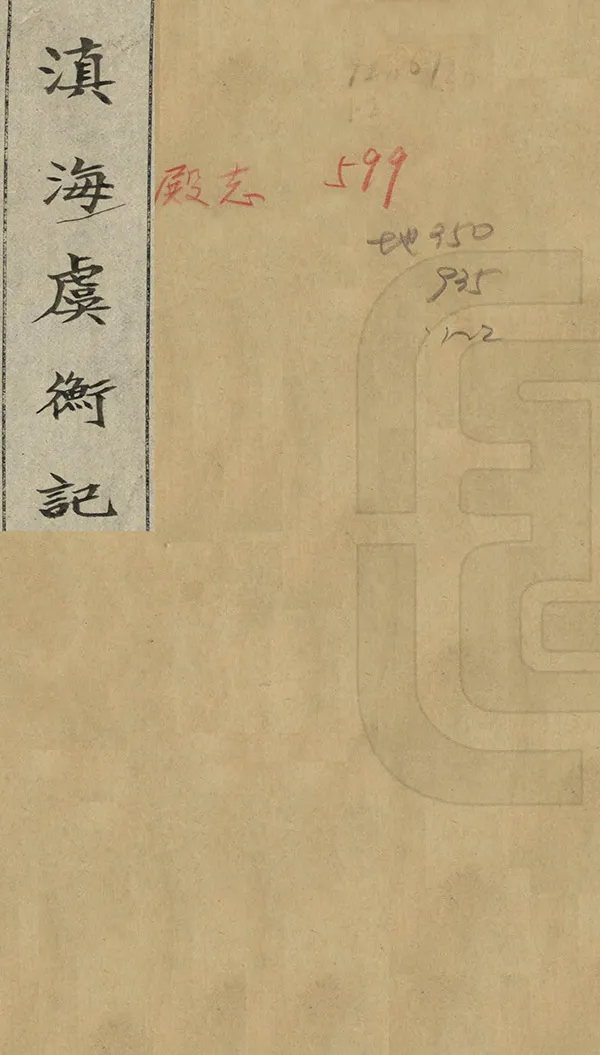 滇海虞衡記
殿志 599
地 950
935